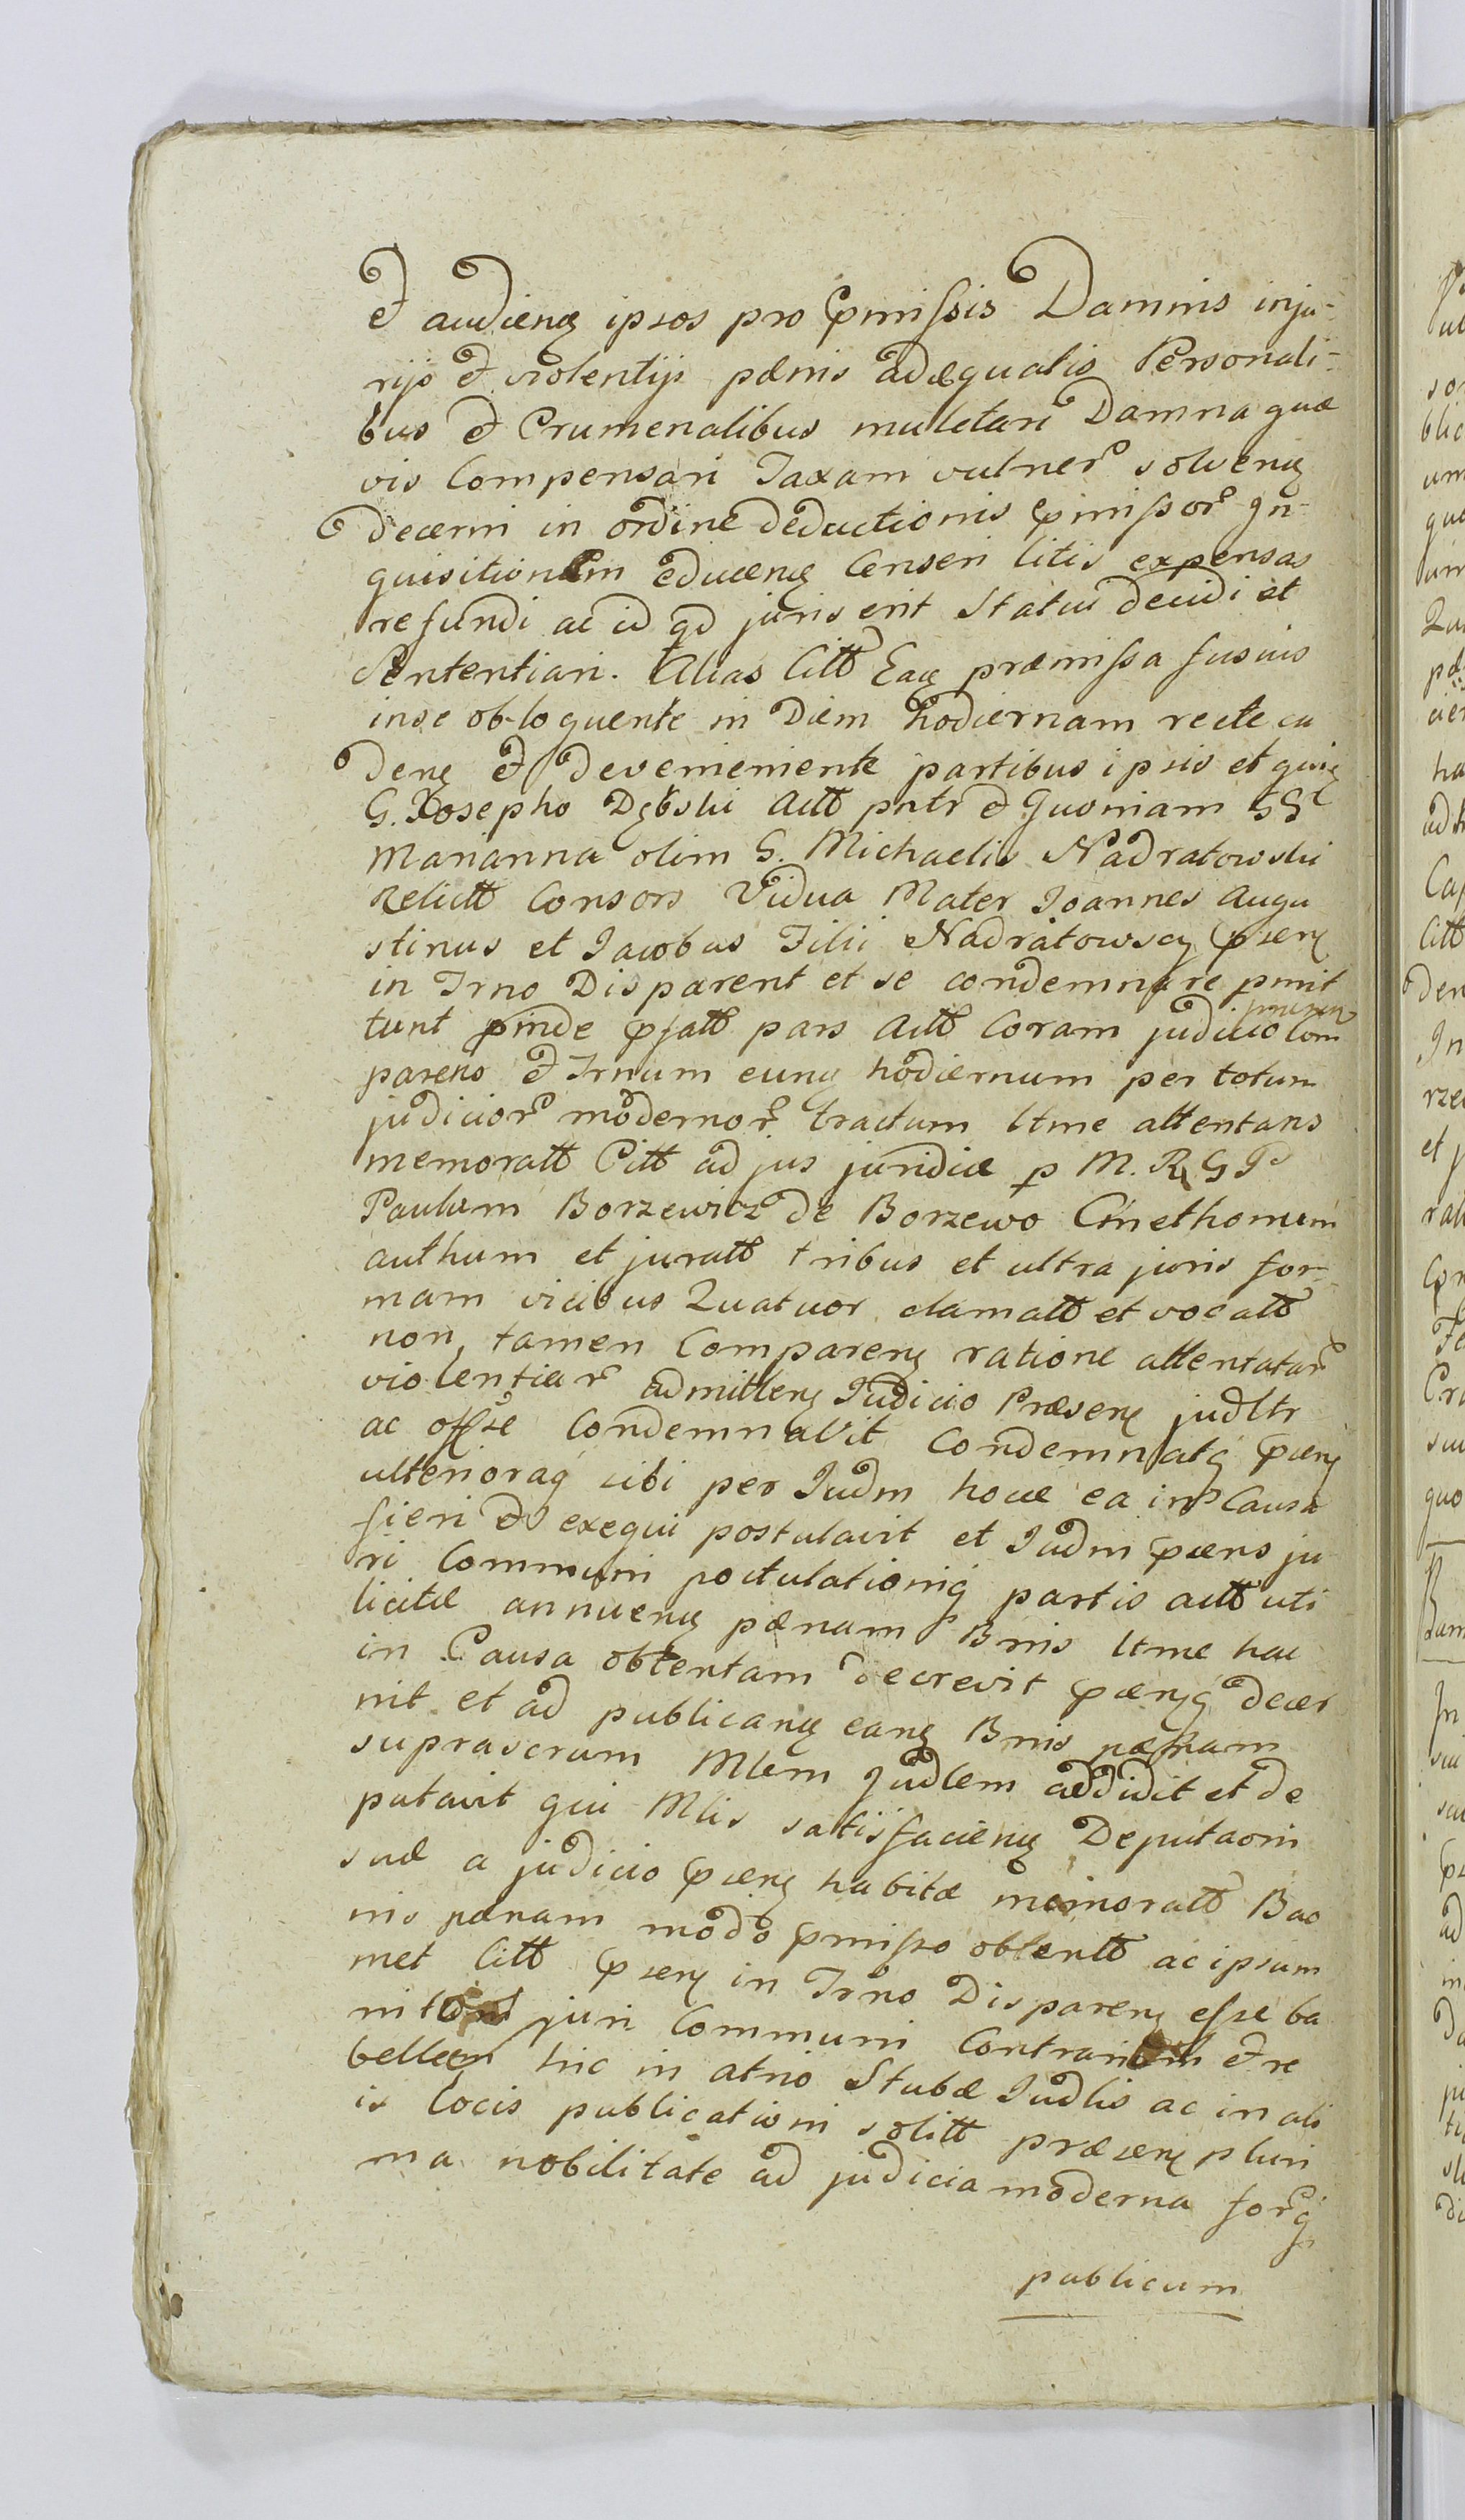 et audieng ipsos pro pmissis Damnis inju-
rijs et violentijs pænis adæqualis Personali-
bus et Crumenalibus mulctari Damna quæ
vis Compensari Taxam vulner solveng
decerni in ordine deductionis pmissor In-
quisitionem educeng Censeri litis expensas
refundi ac id qd juris erit Statui decidi et
Sententiari. Alias Citt Eaq præmissa fusius
in se obloquente in Diem hodiernam recte ca
deng et devenieniente partibus ipsis et quiq
G. Josepho Dębski Actt pntr et Quoniam GG
Marianna olim G. Michaelis Nadratowski
Relictt Consors Vidua Mater Joannes Augu
stinus et Jacobus Filii Nadratowscy psens
in Trno Disparent et se condemnare pmit
tunt pinde pfatt pars Actt Coram judicio Com
parens et Trnum eunq hodiernum per totum
judicior modernor tractum ltme attentans
memoratt Citt ad jus juridice p M. R G
Paulum Borzewicz de Borzewo Cmethonum
authum et juratt tribus et ultra juris for-
mam vicibus Quatuor clamatt et vocatt
non tamen Compareng ratione attentatar
violentiar admitteng Judicio Præseng judltr
ac offse Condemnavit Condemnatq psens
ulterioraq sibi per Judm hocce ea in Causa
fieri et exequi postulavit et Judm psens ju
ri Communi postulationiq partis actt uti
licitæ annuens pænam Bnis ltme hac
in Causa obtentam decrevit psensq decer
nit et ad publicang eang Bnis pænam
suprascrum Mlem Judlem addidit et de
putavit qui Mlis satisfacieng Deputaoni
suæ a judicio pseng habitæ memoratt Bao
nis pænam modo pmisso obtentt ac ipsum
met Citt pseng in Trno Dispareng esse ba
nitum juri Communi Contrarium et re
bellem hic in atrio Stubæ Judlis ac in ali
is locis publicationi solitt præseng pluri
ma nobilitate ad judicia moderna forq
publicum